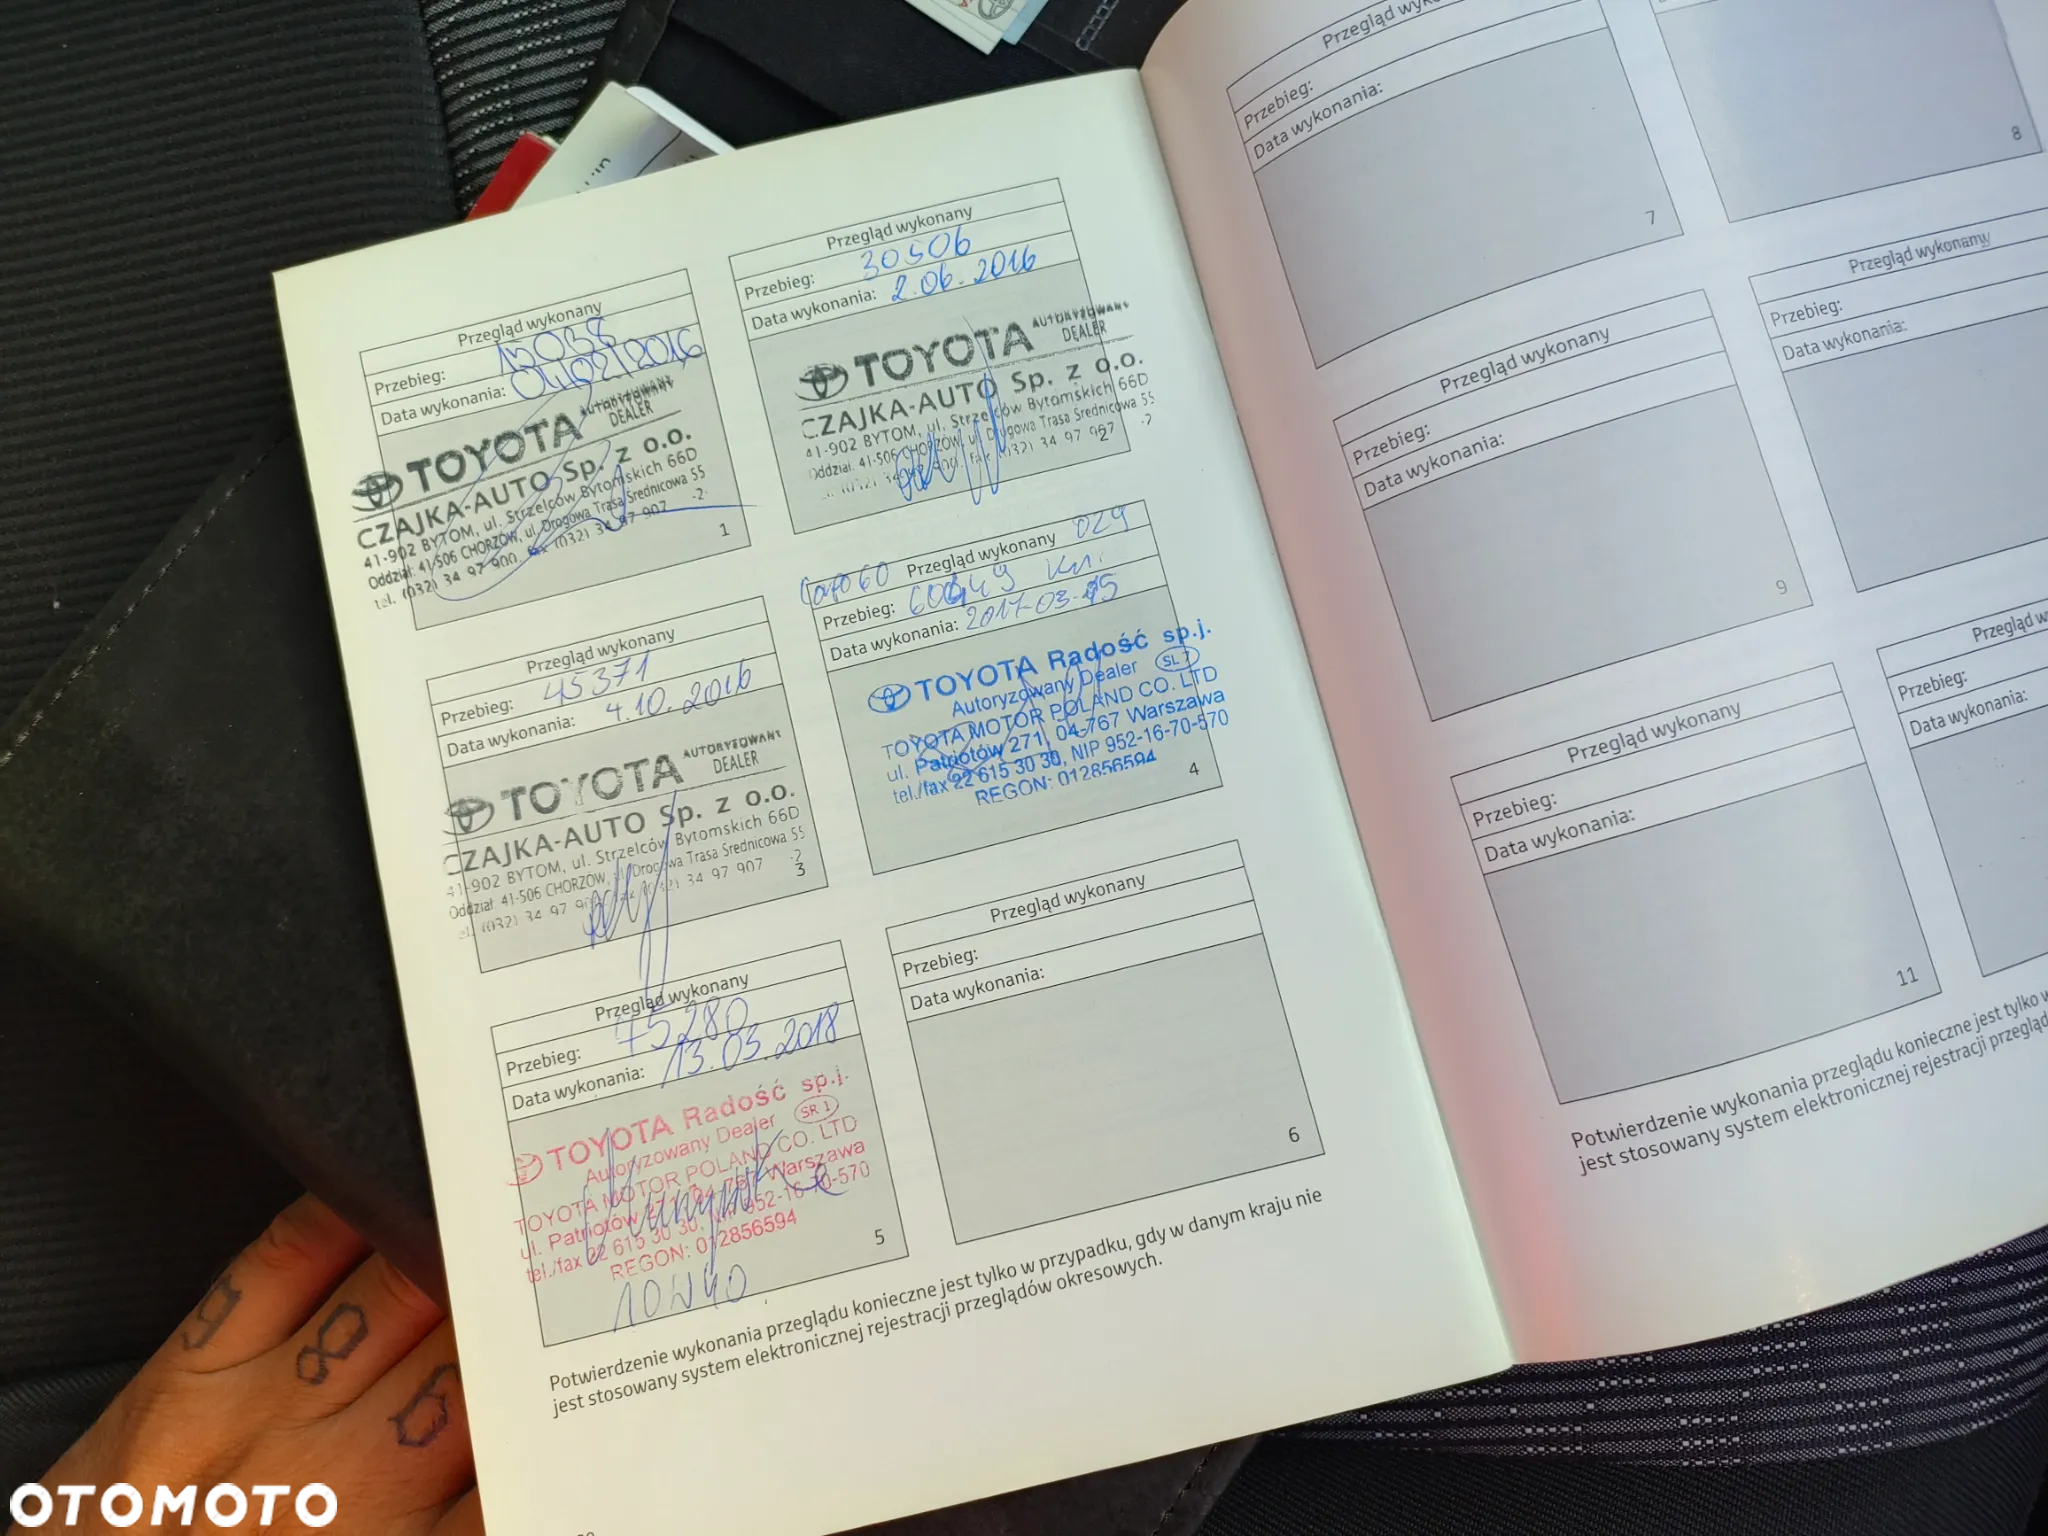 Przegląd wykonany
Przebieg: 15038
Data wykonania: 04/02/2016
TOYOTA AUTORYZOWANY
DEALER
CZAJKA-AUTO Sp. z o.o.
41-902 BYTOM, ul. Strzelców Bytomskich 66D
Oddział: 41-506 CHORZÓW, ul. Drogowa Trasa Średnicowa 55
tel. (032) 34 97 900, fax (032) 34 97 907 -2-
1
Przegląd wykonany
Przebieg: 30506
Data wykonania: 2.06.2016
TOYOTA AUTORYZOWANY
DEALER
CZAJKA-AUTO Sp. z o.o.
41-902 BYTOM, ul. Strzelców Bytomskich 66D
Oddział: 41-506 CHORZÓW, ul. Drogowa Trasa Średnicowa 55
(032) 34 97 900, fax (032) 34 97 907 -2
2
Przegląd wykonany
Przebieg: 45371
Data wykonania: 4.10.2016
TOYOTA AUTORYZOWANY
DEALER
CZAJKA-AUTO Sp. z o.o.
41-902 BYTOM, ul. Strzelców Bytomskich 66D
Oddział: 41-506 CHORZÓW, ul. Drogowa Trasa Średnicowa 55
tel. (032) 34 97 900, fax (032) 34 97 907 -2
3
Przegląd wykonany 029
Przebieg: km.
Data wykonania: 2017-03-15
TOYOTA Radość sp.j.
Autoryzowany Dealer SL 7
TOYOTA MOTOR POLAND CO. LTD
ul. Patriotów 271, 04-767 Warszawa
tel./fax 22 615 30 30, NIP 952-16-70-570
REGON: 012856594
4
Przegląd wykonany
Przebieg: 75280
Data wykonania: 13.03.2018
TOYOTA Radość sp.j.
Autoryzowany Dealer SR 1
TOYOTA MOTOR POLAND CO. LTD
ul. Patriotów 271, 04-767 Warszawa
tel./fax 22 615 30 30, NIP 952-16-70-570
REGON: 012856594
5
10W40
Przegląd wykonany
Przebieg:
Data wykonania:
6
Potwierdzenie wykonania przeglądu konieczne jest tylko w przypadku, gdy w danym kraju nie
jest stosowany system elektronicznej rejestracji przeglądów okresowych.
Przegląd
Przebieg:
Data wykonania:
7
8
Przegląd wykonany
Przebieg:
Data wykonania:
9
Przegląd wykonany
Przebieg:
Data wykonania:
Przegląd wykonany
Przebieg:
Data wykonania:
11
Przegląd
Przebieg:
Data wykonania:
Potwierdzenie wykonania przeglądu konieczne jest tylko w
jest stosowany system elektronicznej rejestracji
OTOMOTO